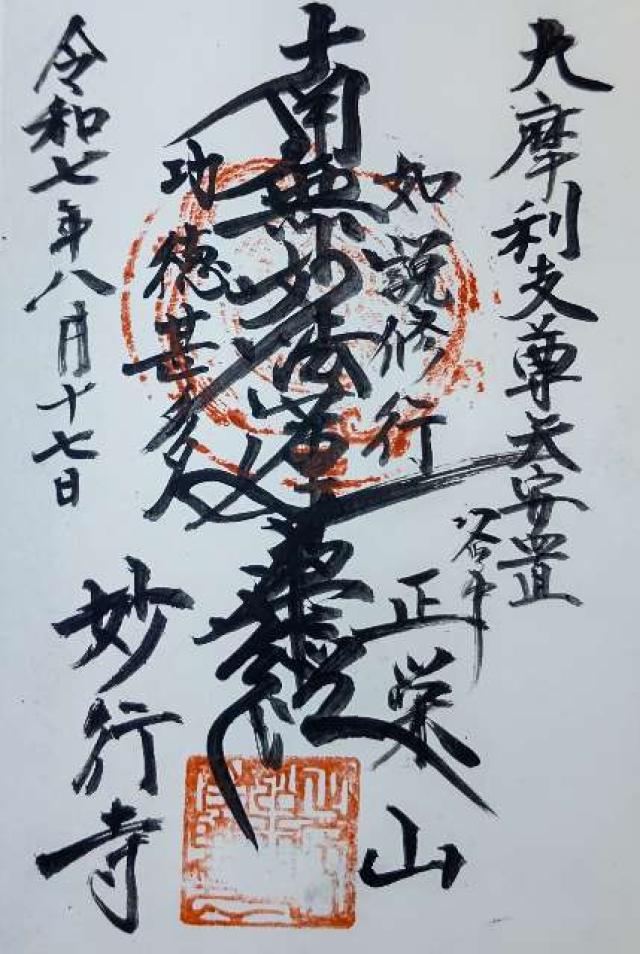 大摩利支尊天安置
谷中
正栄山
如説修行
南無妙法蓮華経
功徳甚多
令和七年八月十七日
妙行寺